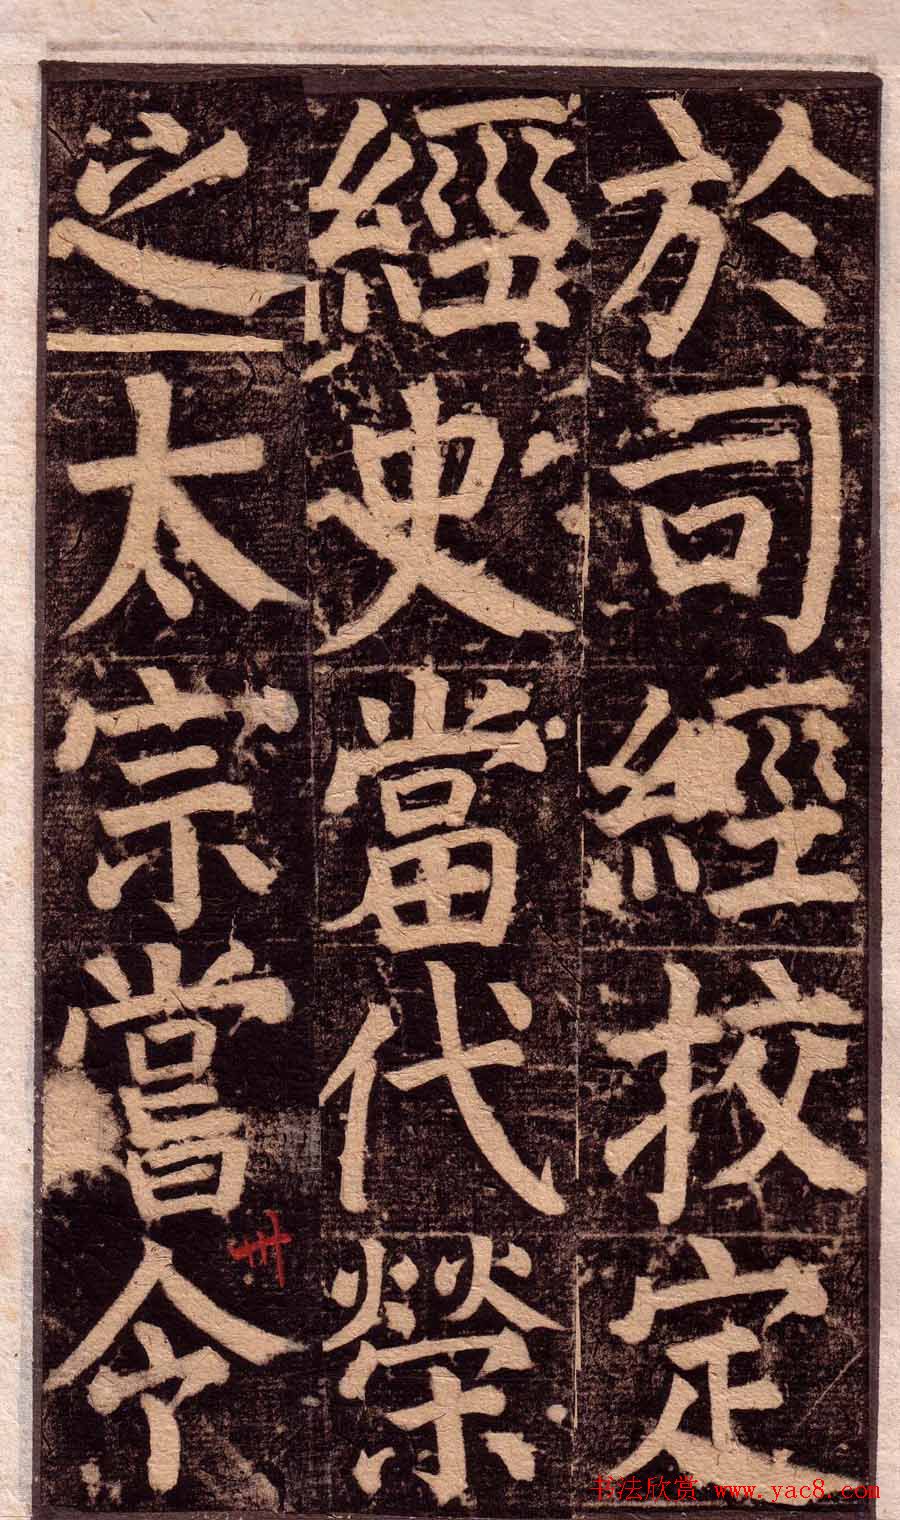 於司經挍定
經史當代榮
之太宗嘗令
卅
书法欣赏 www.yac8.com